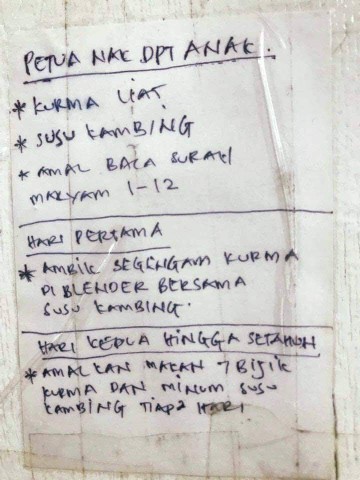 PETUA NAK DPT ANAK.
* KURMA LIAT
* SUSU KAMBING
* AMAL BACA SURAH
MARYAM 1-12
HARI PERTAMA
* AMBIK SEGENGAM KURMA
DI BLENDER BERSAMA
SUSU KAMBING.
HARI KEDUA HINGGA SETAHUN
* AMALKAN MAKAN 7 BIJIK
KURMA DAN MINUM SUSU
KAMBING TIAP2 HARI